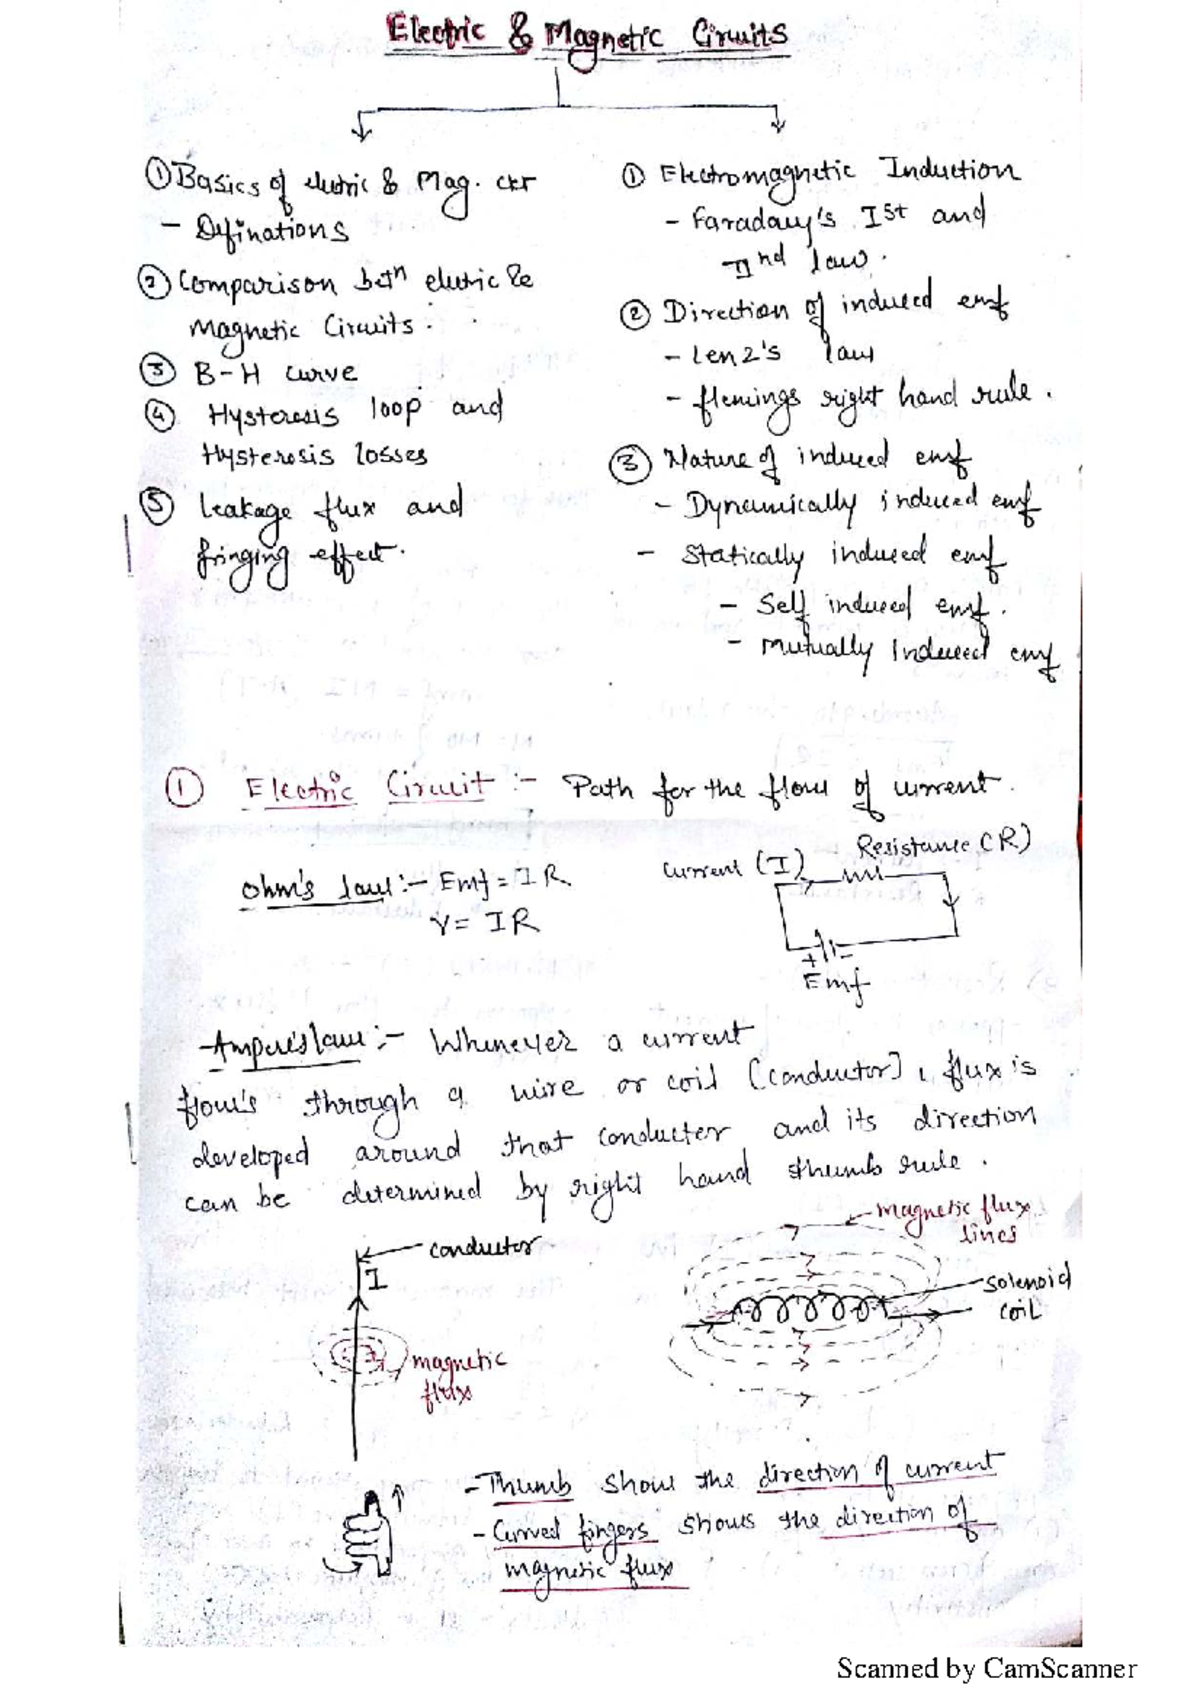 Electric & Magnetic Circuits
① Basics of eletric & Mag. ckr
- Definations
② Comparison betn eletric &
Magnetic Circuits.
③ B-H curve
④ Hysteresis loop and
Hysteresis losses
⑤ Leakage flux and
fringing effect.
① Electromagnetic Induction
- Faraday's Ist and
IInd law.
② Direction of induced emf
- Lenz's law
- flemings right hand rule.
③ Nature of induced emf
- Dynamically induced emf
- Statically induced emf
- Self induced emf.
- Mutually Induced emf
① Electric Circuit :- Path for the flow of current.
Ohm's law :- Emf = IR.
V = IR
Current (I)
Resistance (R)
+ -
Emf
Ampere's law :- Whenever a current
flows through a wire or coil (conductor), flux is
developed around that conductor and its direction
can be determined by right hand thumb rule.
conductor
I
magnetic
flux
magnetic flux
lines
solenoid
coil
- Thumb show the direction of current
- Curved fingers shows the direction of
magnetic flux
Scanned by CamScanner